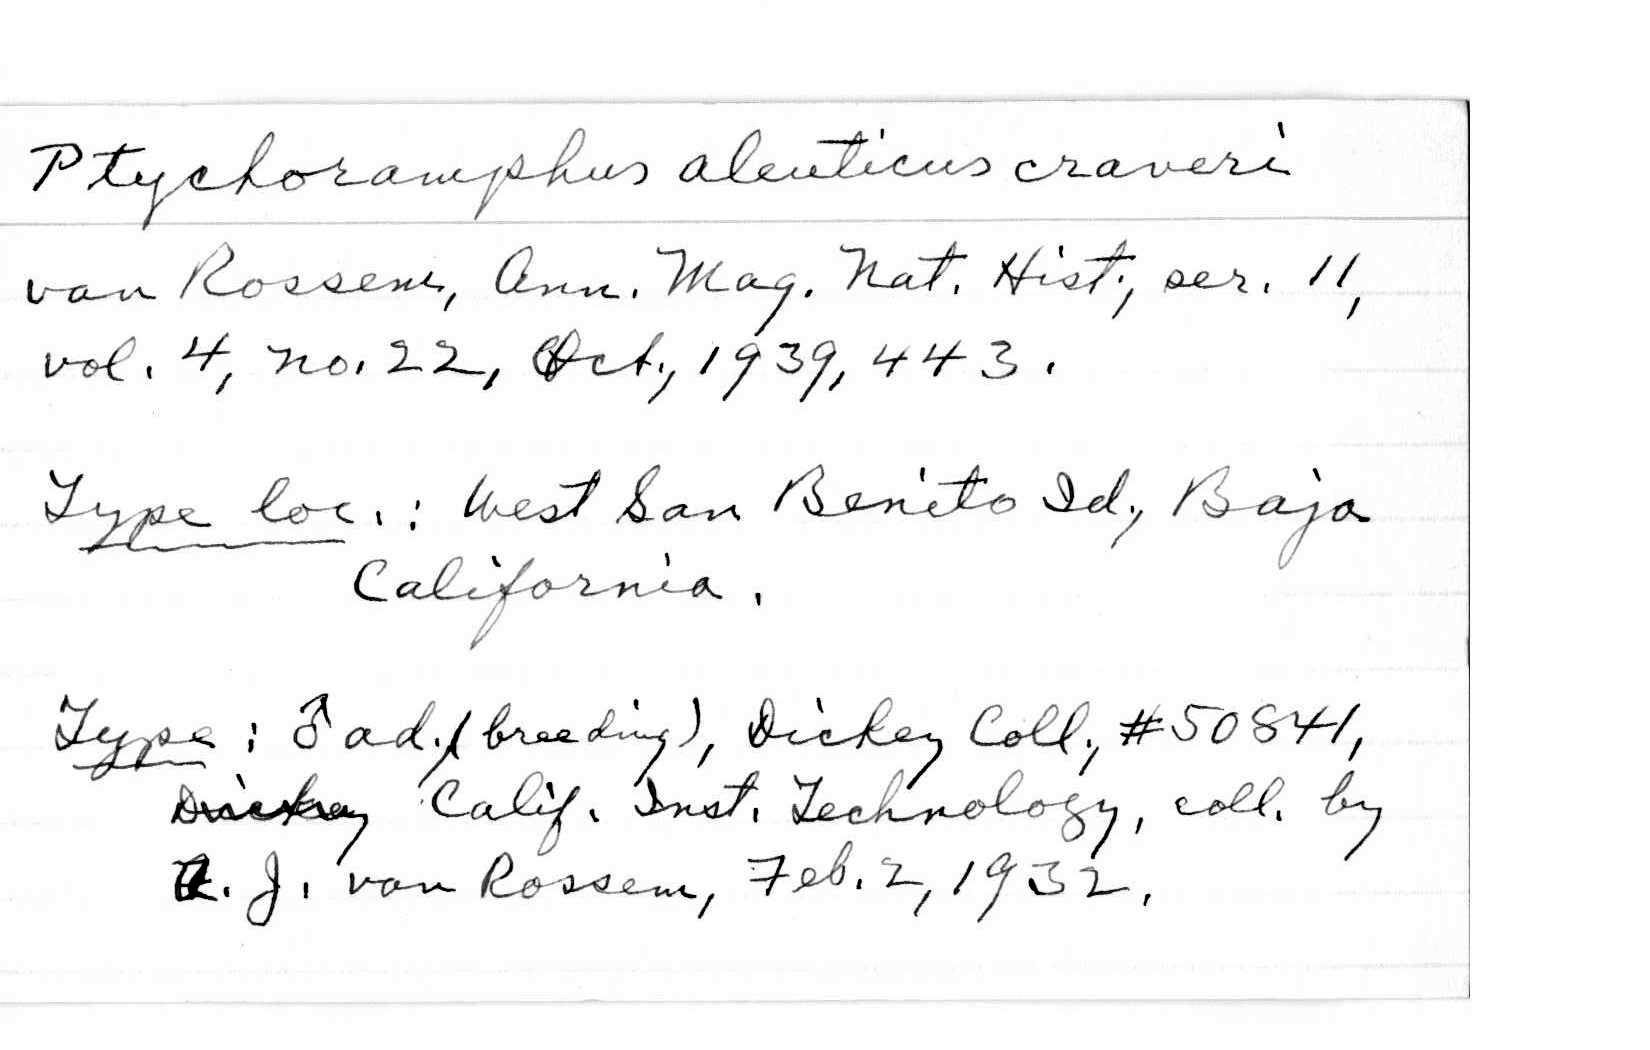 Ptychoramphus aleuticus craveri
van Rossem, Ann. Mag. Nat. Hist., ser. 11,
vol. 4, no. 22, Oct., 1939, 443.
Type loc.: West San Benito Id., Baja
California.
Type: ♂ ad. (breeding), Dickey Coll., #50841,
Dickey Calif. Inst. Technology, coll. by
A. J. van Rossem, Feb. 2, 1932.